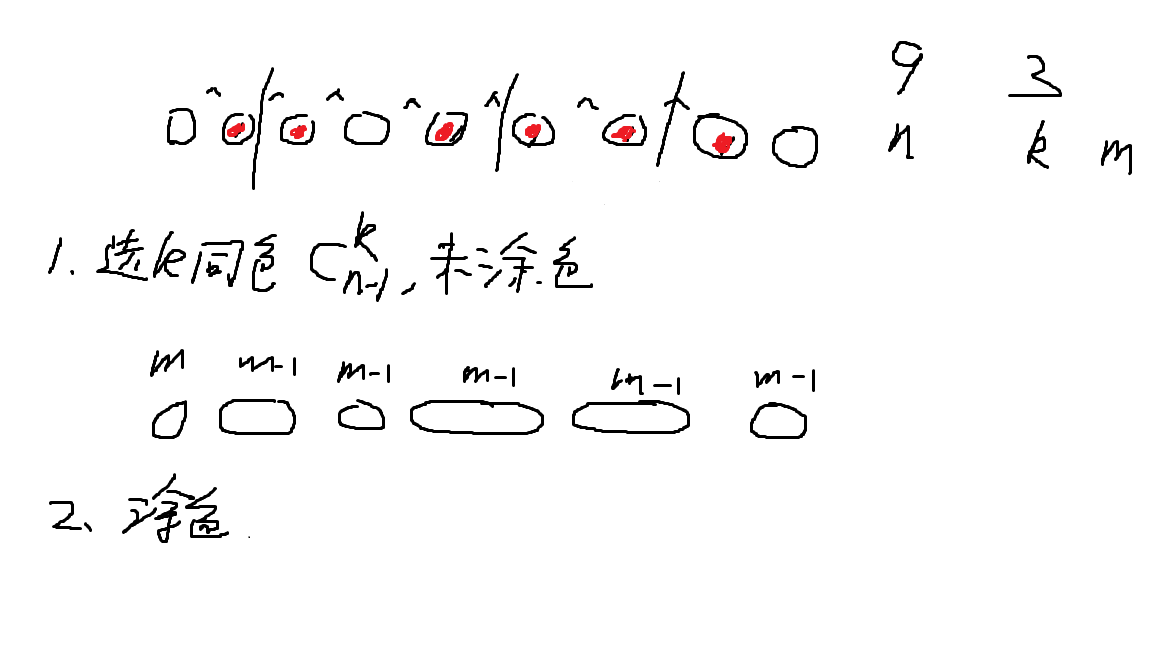 9 3
n k m
1. 选k同色 C_{n-1}^{k}, 未涂色
m m-1 m-1 m-1 m-1 m-1
2、涂色.